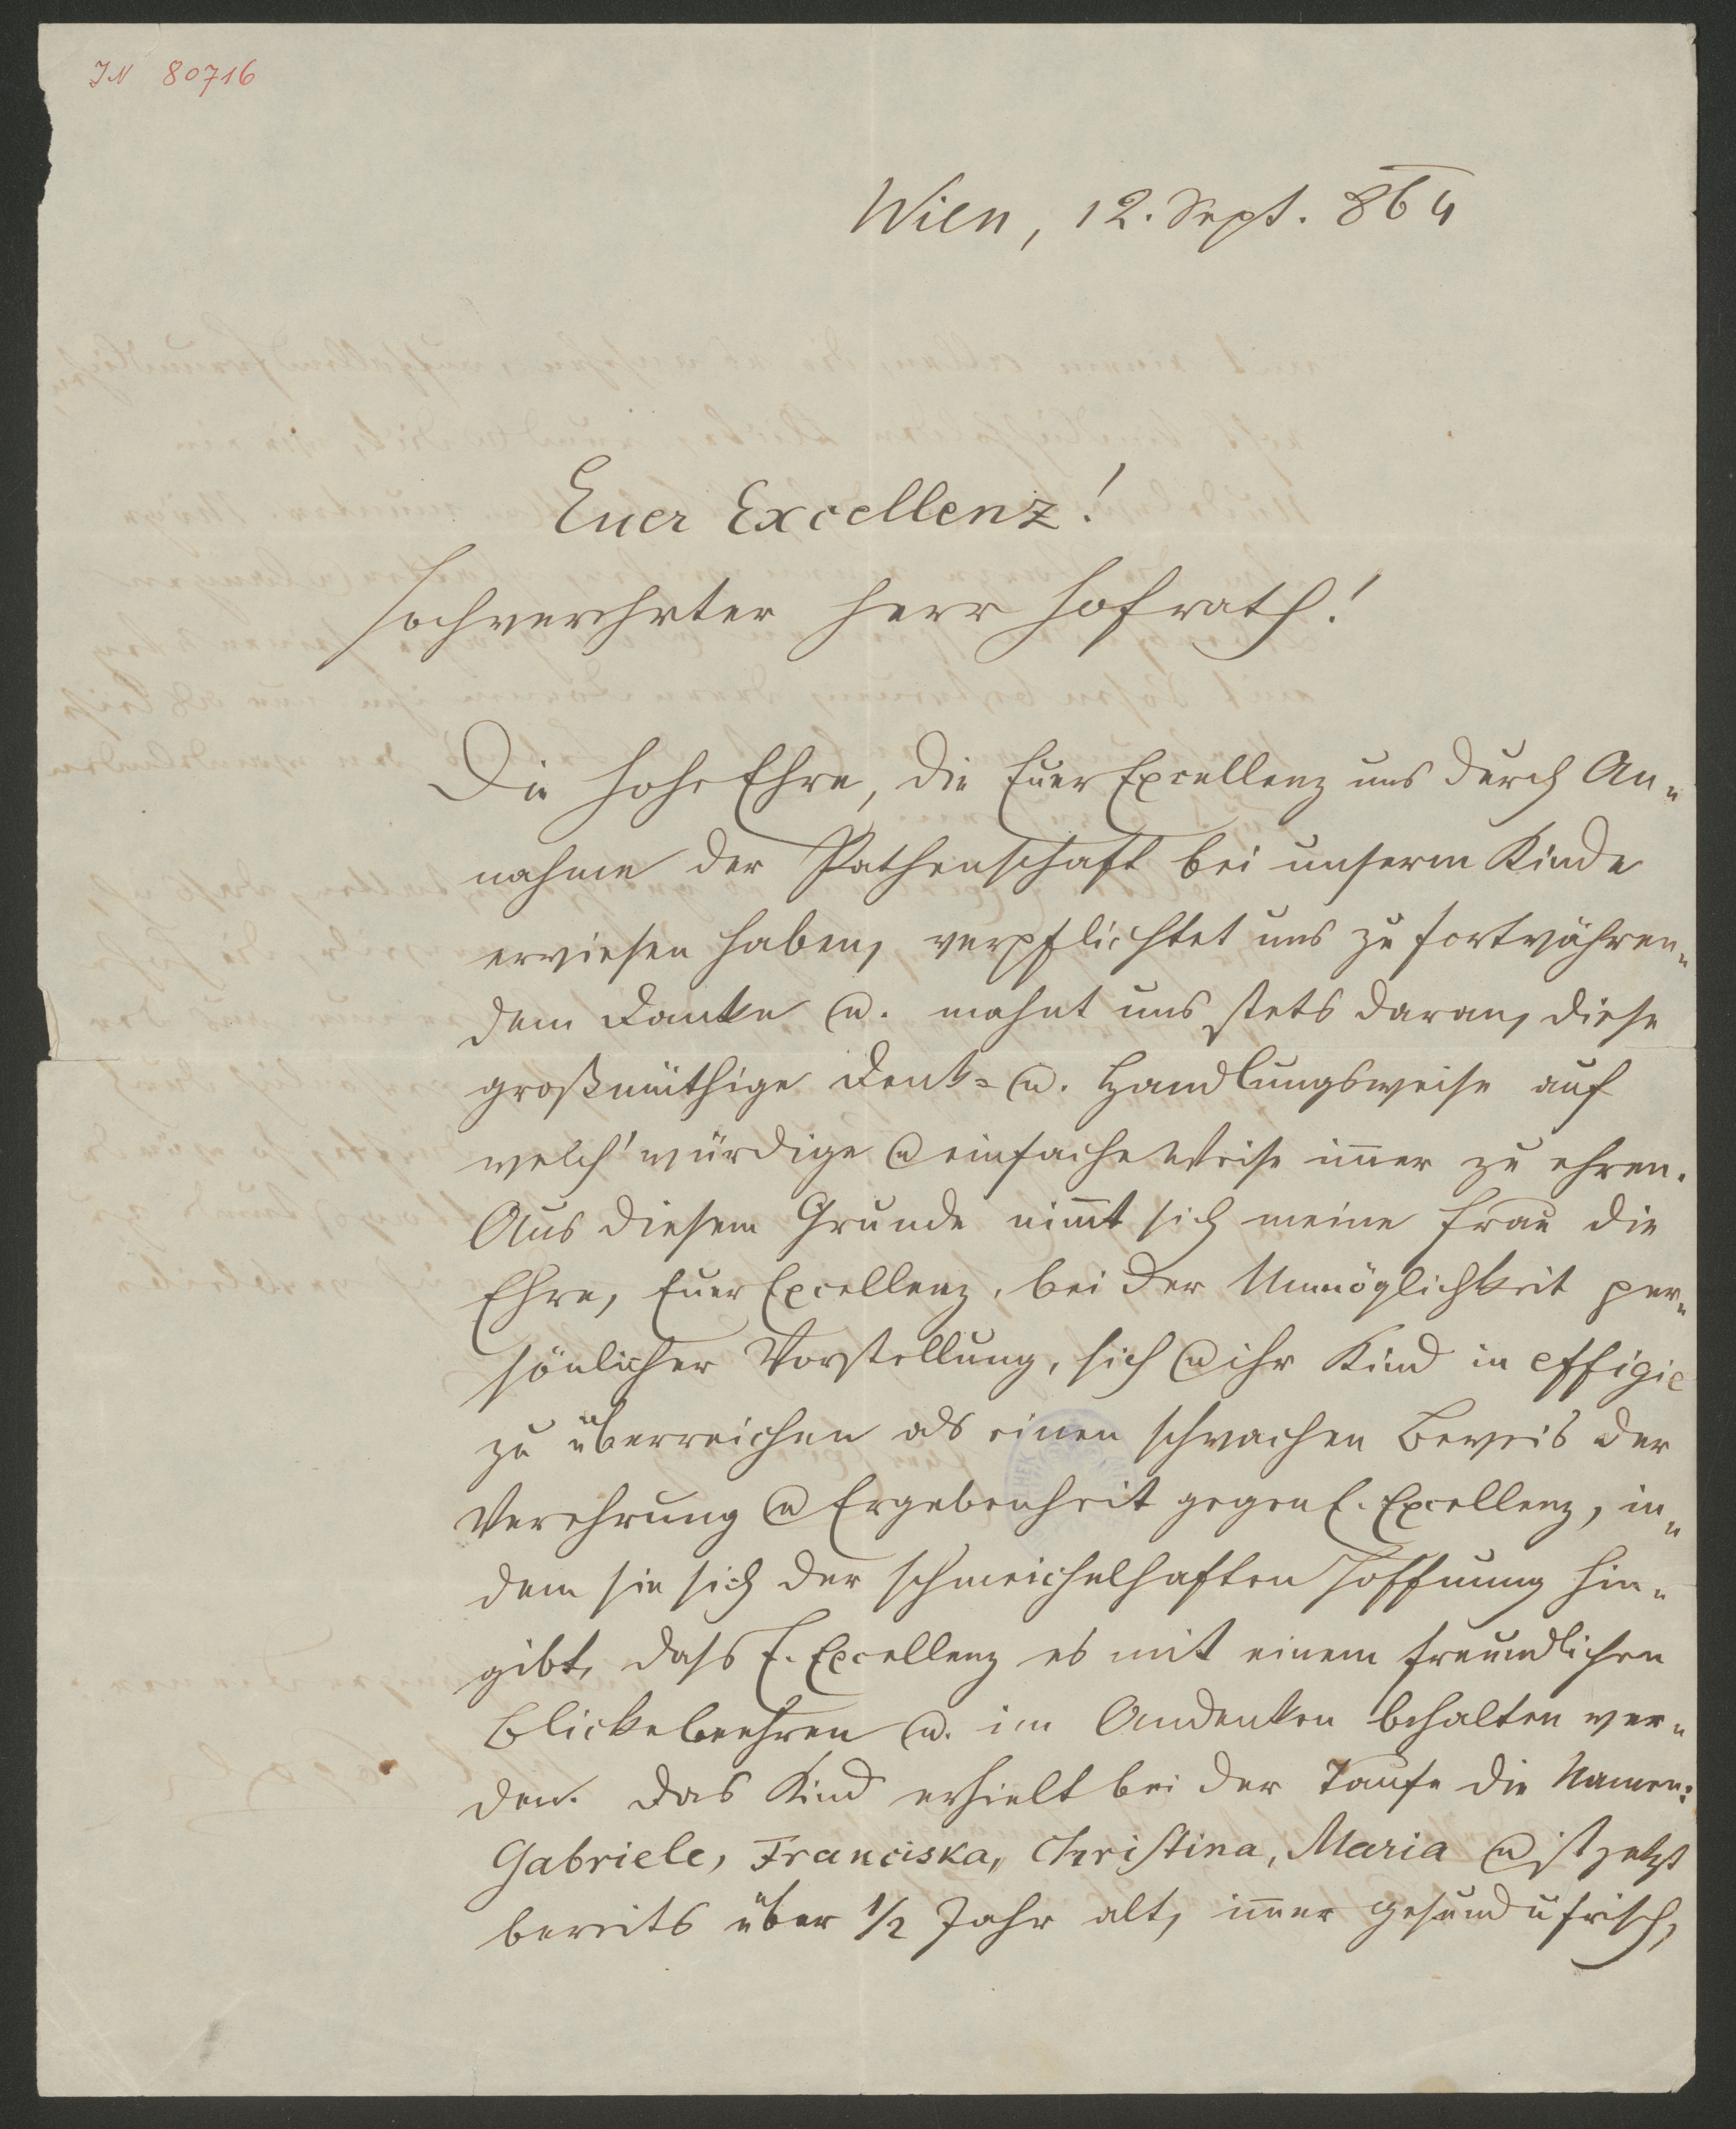 IN 80716
Wien, 12. Sept. 864
Euer Excellenz!
Hochverehrter Herr Hofrath!
Die hohe Ehre, die Euer Excellenz uns durch An-
nahme der Pathenschaft bei unserem Kinde
erwiesen haben, verpflichtet uns zu fortwähren-
dem Danke u. mahnt uns stets daran, diese
großmüthige Denk- u. Handlungsweise auf
welch' würdige u einfache Weise im̄er zu ehren.
Aus diesem Grunde nim̄t sich meine Frau die
Ehre, Euer Excellenz, bei der Unmöglichkeit per-
sönlicher Vorstellung, sich u ihr Kind in effigie
zu überreichen als einen schwachen Beweis der
Verehrung u Ergebenheit gegen E. Excellenz, in-
dem sie sich der schmeichelhaften Hoffnung hin-
gibt, dass E. Excellenz es mit einem freundlichen
Blicke beehren u. im Andenken behalten wer-
den. Das Kind erhielt bei der Taufe die Namen:
Gabriele, Franciska, Christina, Maria u ist jetzt
bereits über 1/2 Jahr alt, im̄er gesund u frisch,